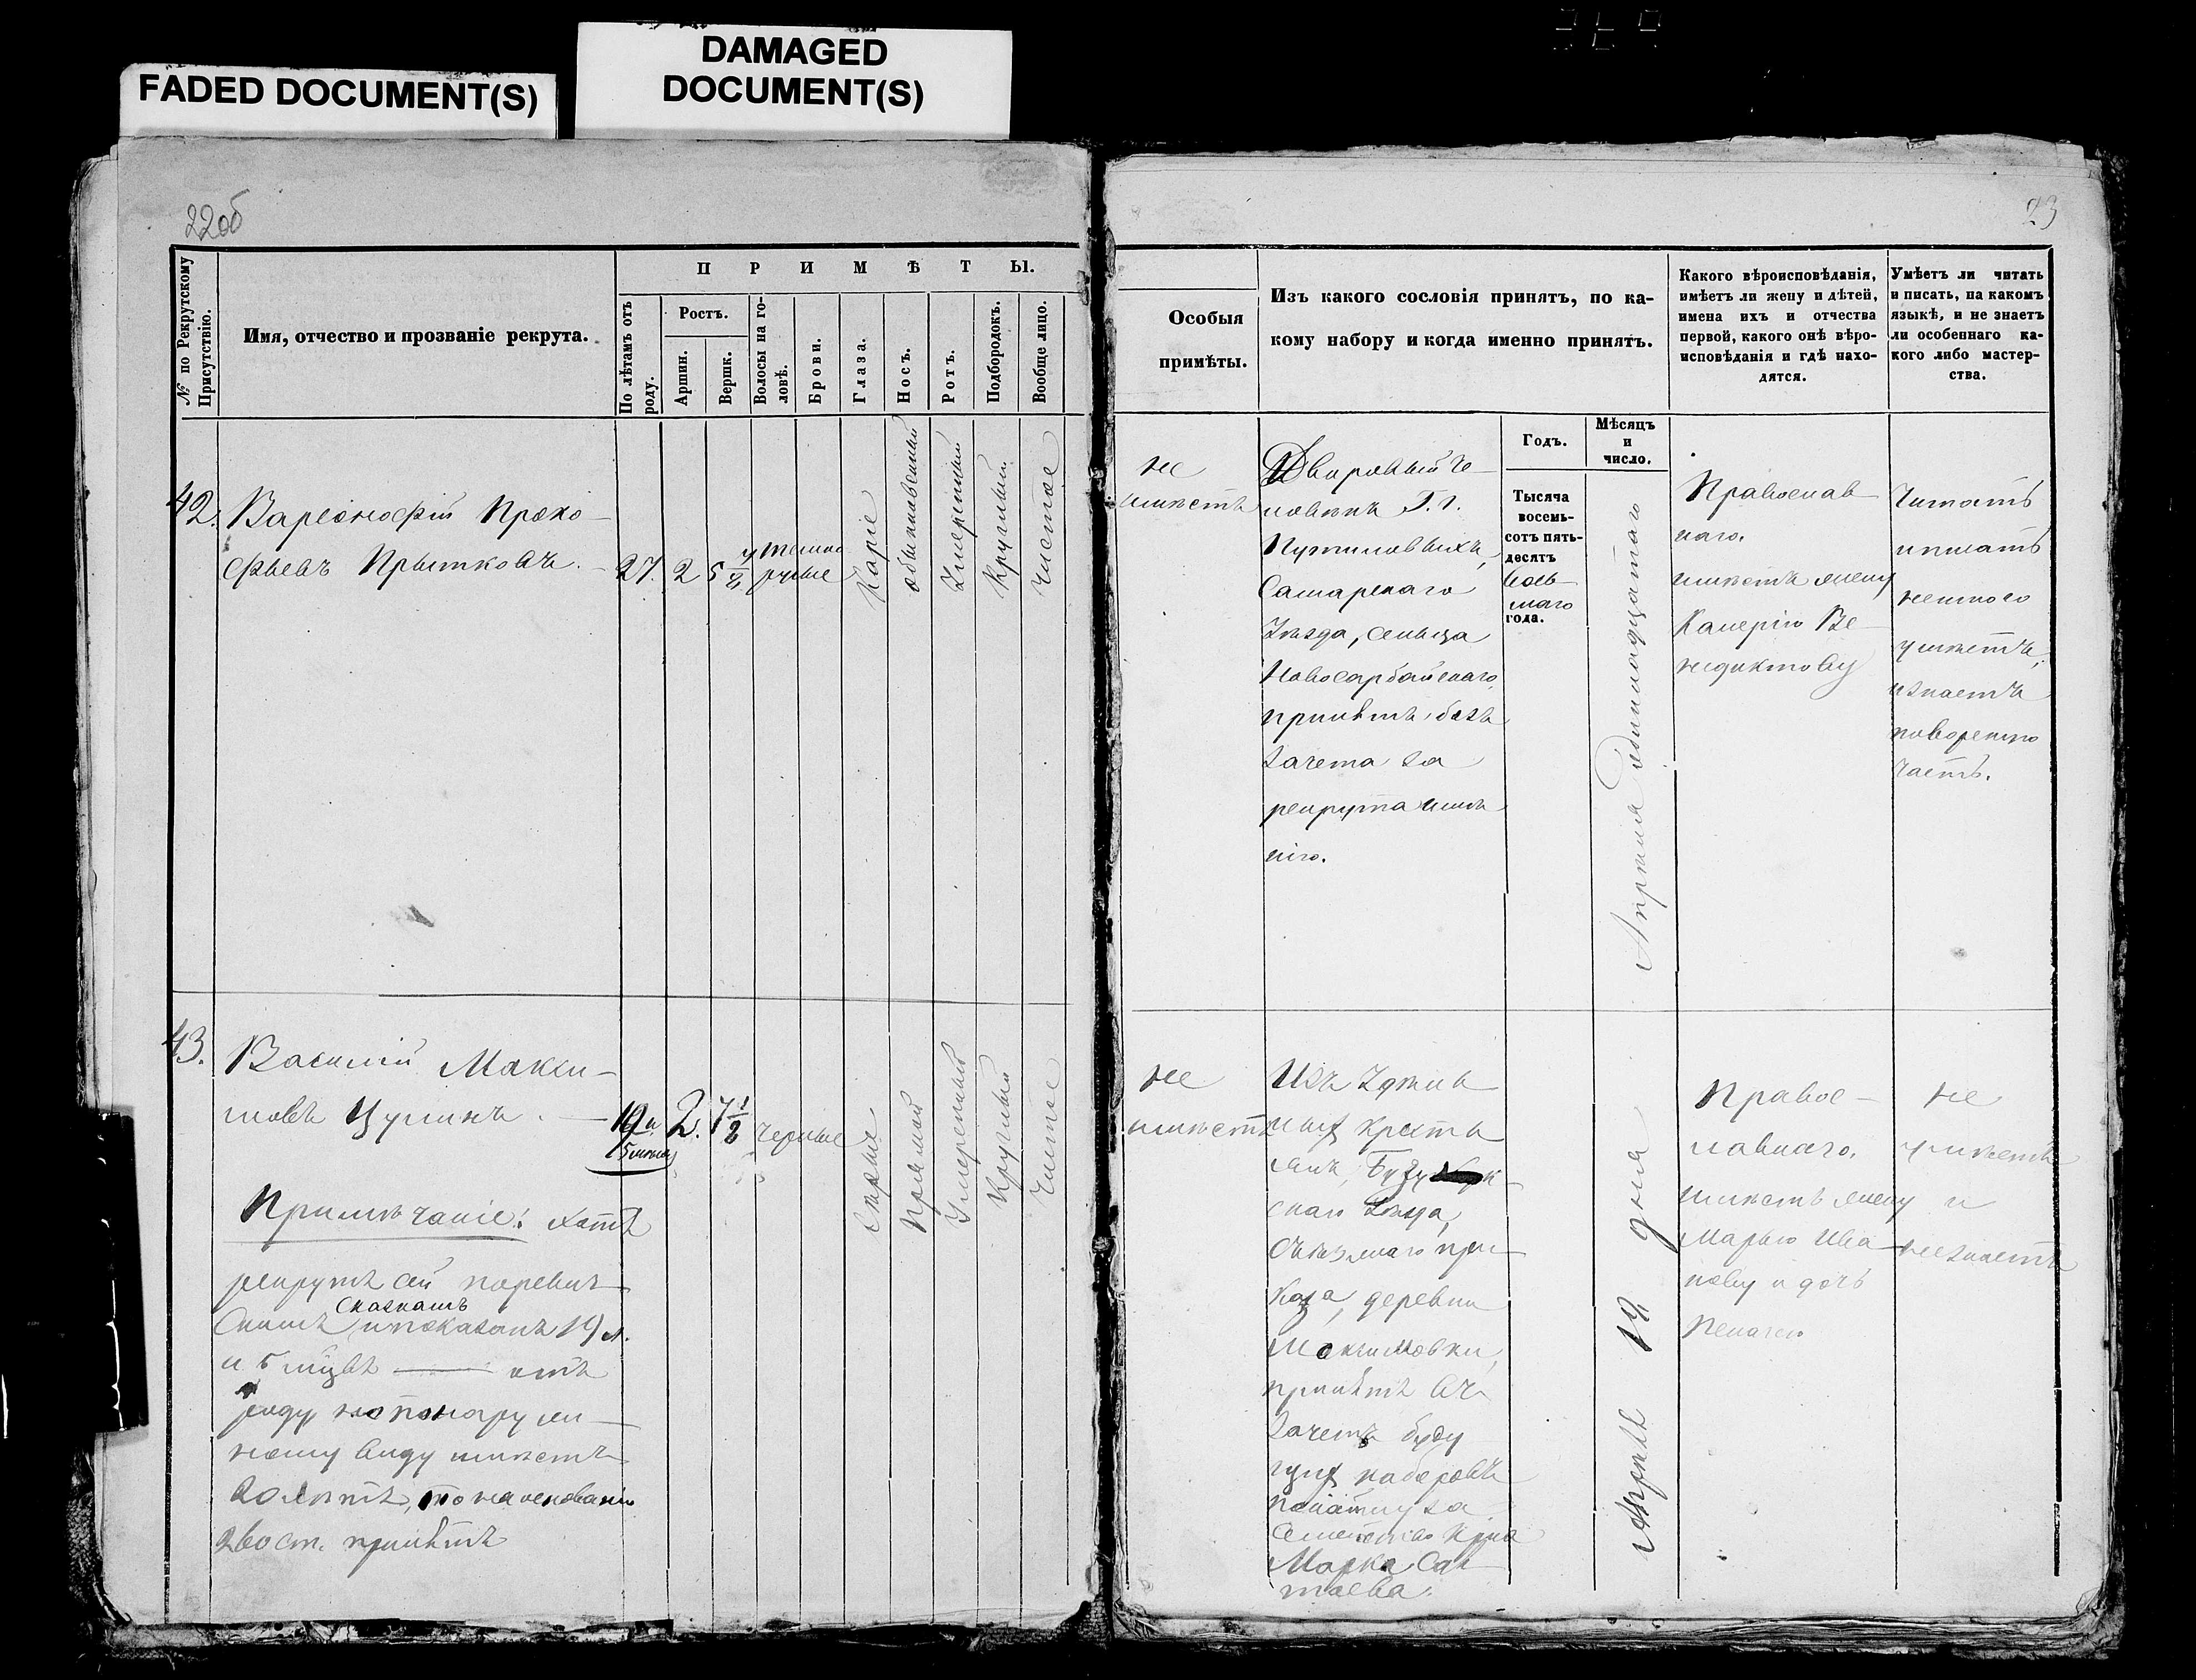 FADED DOCUMENT(S)
DAMAGED
DOCUMENT(S)
22об
№ по Рекрутскому
Присутствію.
Имя, отчество и прозваніе рекрута.
ПРИМѢТЫ.
По лѣтамъ отъ
роду.
Ростъ.
Аршин.
Вершк.
Волосы на го-
ловѣ.
Брови.
Глаза.
Носъ.
Ротъ.
Подбородокъ.
Вообще лицо.
42.
Варсонофій Проко-
фьевъ Прытковъ.
27.
2
5 4/8
темно
русые
Каріе
обыкновенный
Умеренный
Круглый
чистое
43.
Василій Макси-
мовъ Цупинъ.
19 и
5 месяц
2.
7 1/8
черные
Серые
Прямой
Умеренный
Круглый
Чистое
Примѣчаніе: хотя
рекрутъ сей по ревиз
Скимъ сказкамъ и показанъ 19 л.
и 5 мѣцовъ отъ
роду но по наруж-
ному виду имѣетъ
20 лѣтъ, то на основаніи
ст. принятъ
23
Особыя
примѣты.
Изъ какого сословія принятъ, по ка-
кому набору и когда именно принятъ.
Какого вѣроисповѣданія,
имѣетъ ли жену и дѣтей,
имена ихъ и отчества
первой, какого онѣ вѣро-
исповѣданія и гдѣ нахо-
дятся.
Умѣетъ ли читать
и писать, на какомъ
языкѣ, и не знаетъ
ли особеннаго ка-
кого либо мастер-
ства.
Годъ.
Мѣсяцъ
и
число.
не
имѣетъ
Дворовый че-
ловекъ Г.г.
Путиловыхъ,
Самарскаго
Уѣзда, сельца
Новосарбайскаго,
принятъ безъ
зачета за
рекрута
Тысяча
восемь-
сотъ пять-
десятъ
вось-
маго
года.
Апреля Одиннадцатаго
Православ-
наго.
имѣетъ жену
Калерію Ве-
недиктову
Читать
и писать
немного
умѣетъ,
и знаетъ
поваренную
часть.
не
имѣетъ
Изъ Удѣль
ныхъ Кресть
янъ, Бузулук-
скаго Уѣзда,
при-
каза, деревни
Максимовки,
принятъ въ
зачетъ буду
щихъ наборовъ
за
семейство
Марка
Апрѣля 12 дня
Правос-
лавнаго.
имѣетъ жену
Марью Ива-
нову и дочь
Пелагею
не
умѣетъ
и
не знаетъ